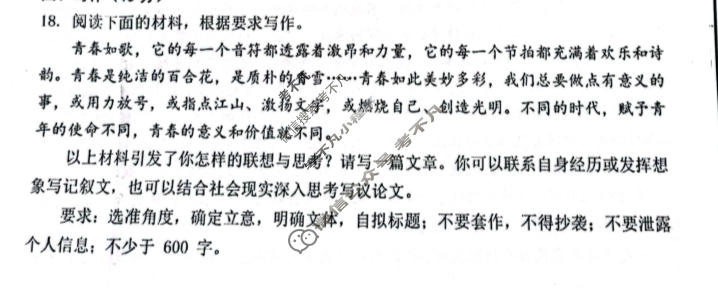 18. 阅读下面的材料，根据要求写作。
青春如歌，它的每一个音符都透露着激昂和力量，它的每一个节拍都充满着欢乐和诗
韵。青春是纯洁的百合花，是质朴的香雪……青春如此美妙多彩，我们总要做点有意义的
事，或用力放号，或指点江山、激扬文字，或燃烧自己、创造光明。不同的时代，赋予青
年的使命不同，青春的意义和价值就不同。
以上材料引发了你怎样的联想与思考？请写一篇文章。你可以联系自身经历或发挥想
象写记叙文，也可以结合社会现实深入思考写议论文。
要求：选准角度，确定立意，明确文体，自拟标题；不要套作，不得抄袭；不要泄露
个人信息；不少于 600 字。